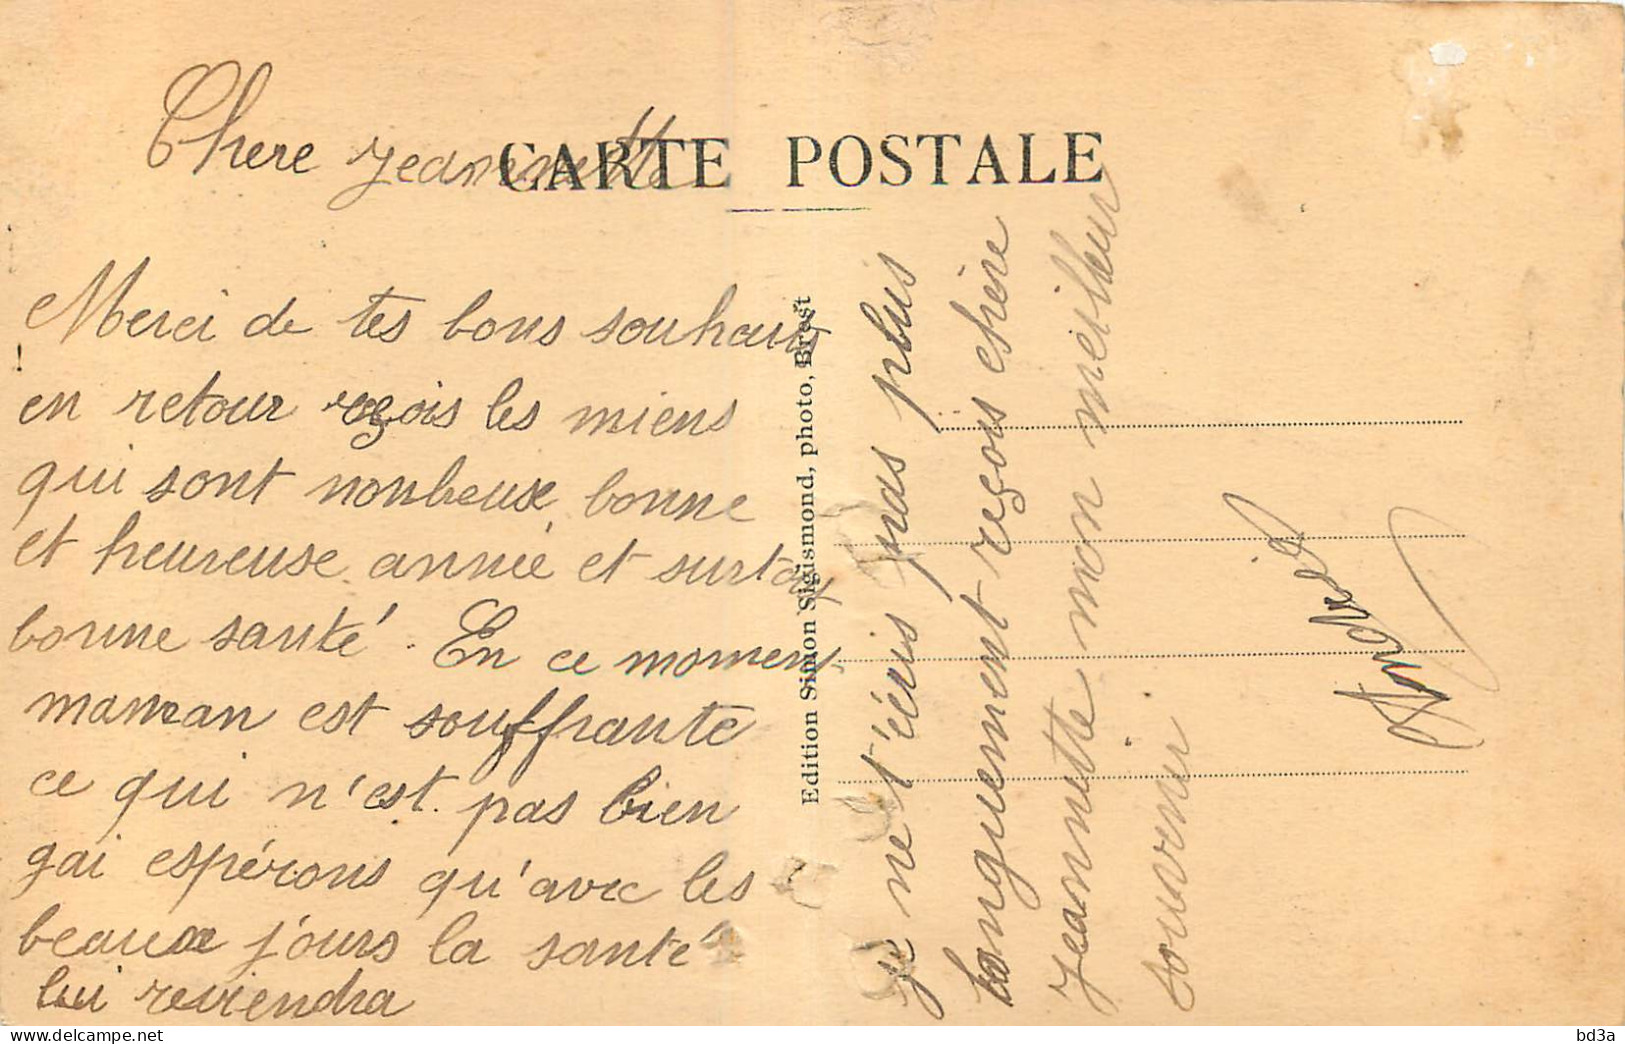 CARTE POSTALE
Chere Jeannette
Merci de tes bons souhaits
en retour reçois les miens
qui sont nonbeux bonne
et heureuse année et surtout
bonne santé. En ce moment
maman est souffrante
ce qui n'est pas bien
gai espérons qu'avec les
beaux jours la santé
lui reviendra
je ne t'écris pas plus
longuement reçois chère
Jeannette mon meilleur
souvenir
Edition Simon Sigismond, photo, Brest
bd3a